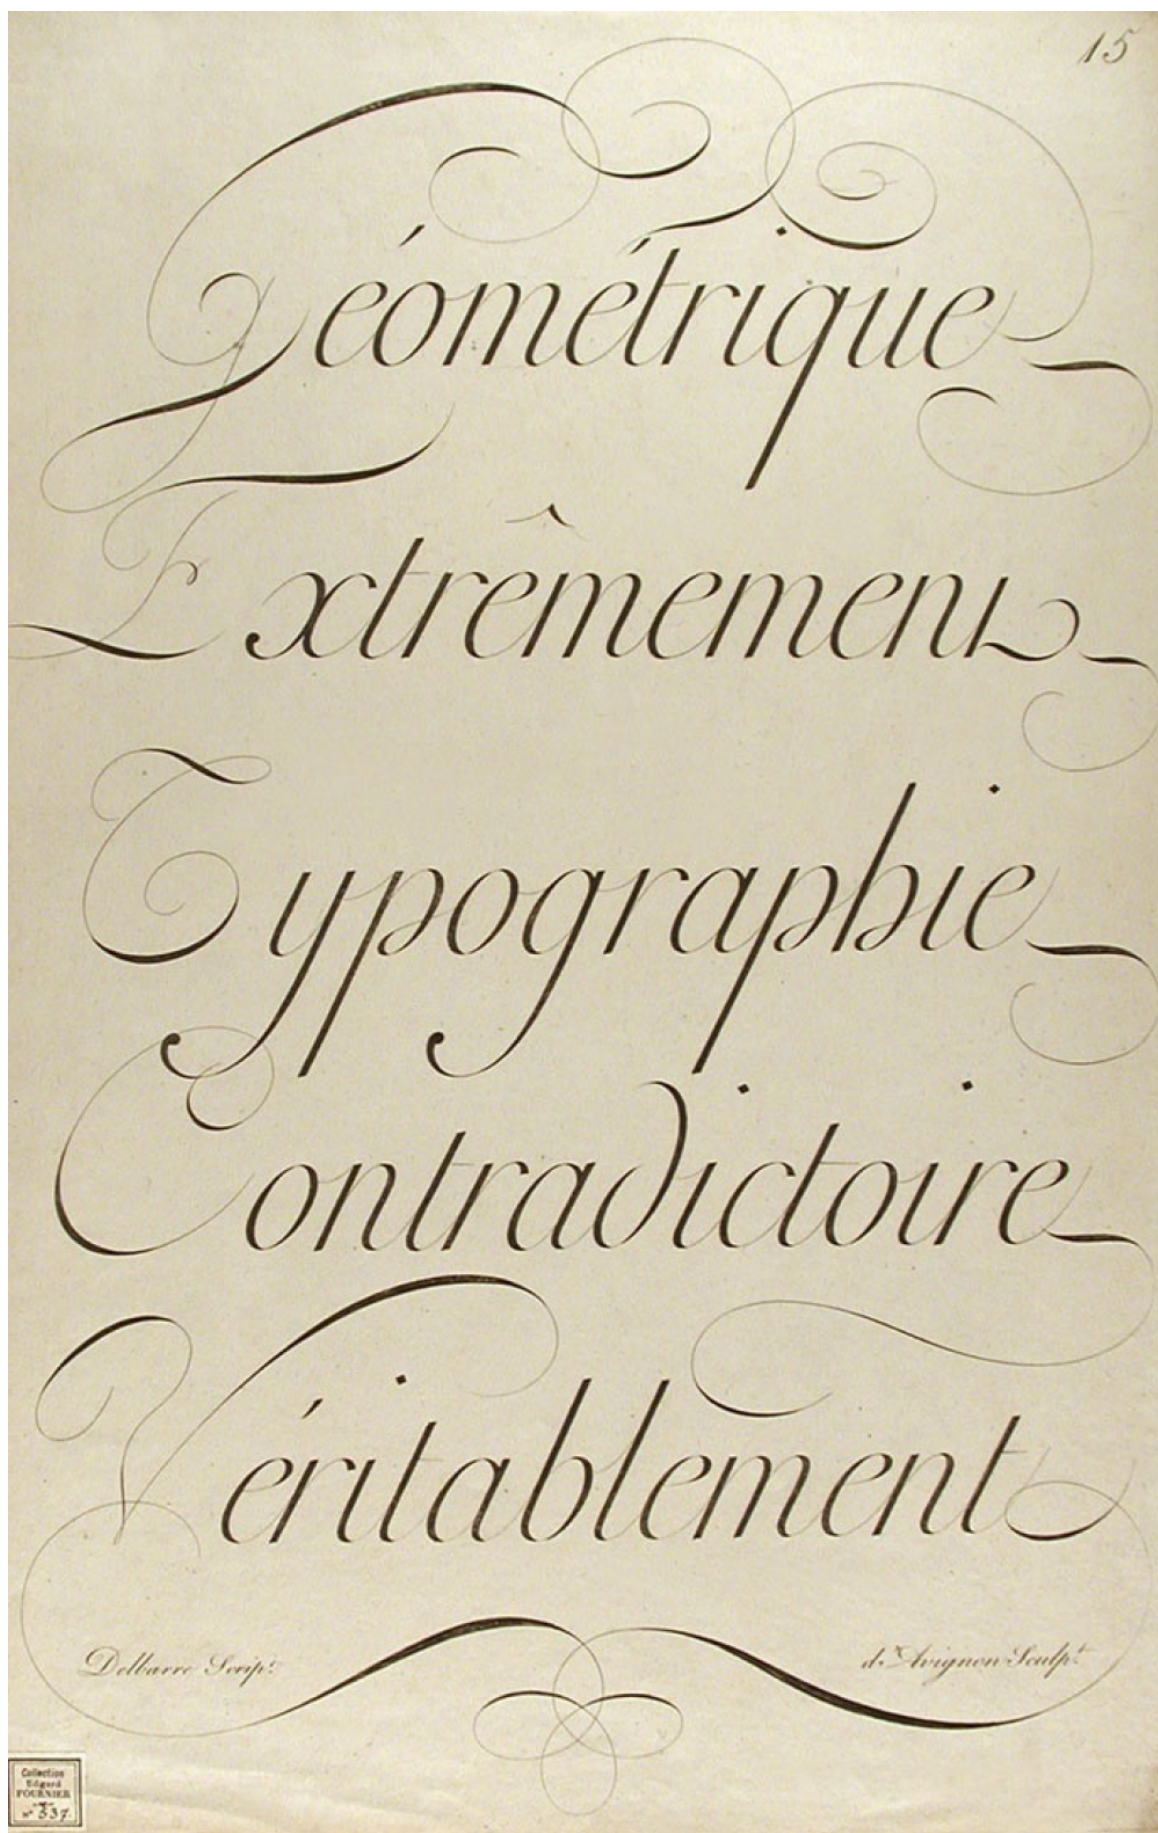 15
Géométrique
Extrêmement
Typographie
Contradictoire
Véritablement
Delbarre Script. d'Avignon Sculpt.
Collection
Edgard
FOURNIER
n° 337